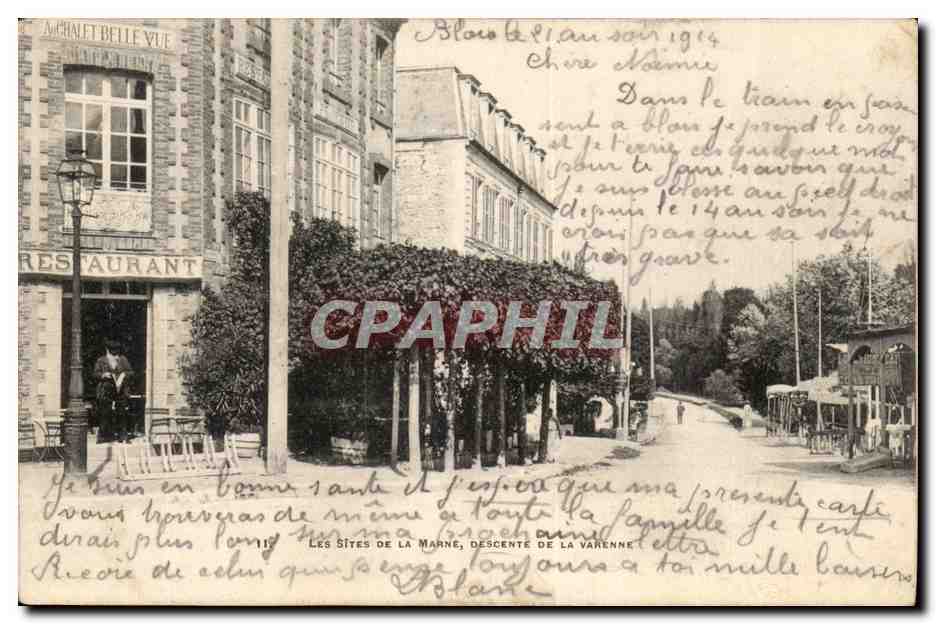 AU CHALET BELLE VUE
RESTAURANT
Blois le 21 au soir 1914
Chère Noëmie
Dans le train en pas
sent a blois je prend le croy
et je t'ecrie ces quelque mot
pour te faire savoir que
je suis blesse au pied droit
depuis le 14 au soir je ne
crois pas que sa soit
très grave.
CPAPHIL
Je suis en bonne sante et j'espère que ma presente carte
vous trouveras de même a toute la famille Je t'ent
dirais plus long sur ma prochaine lettre
11 LES SITES DE LA MARNE, DESCENTE DE LA VARENNE
Recoie de celui qui pense toujours a toi mille baisers
Blanc